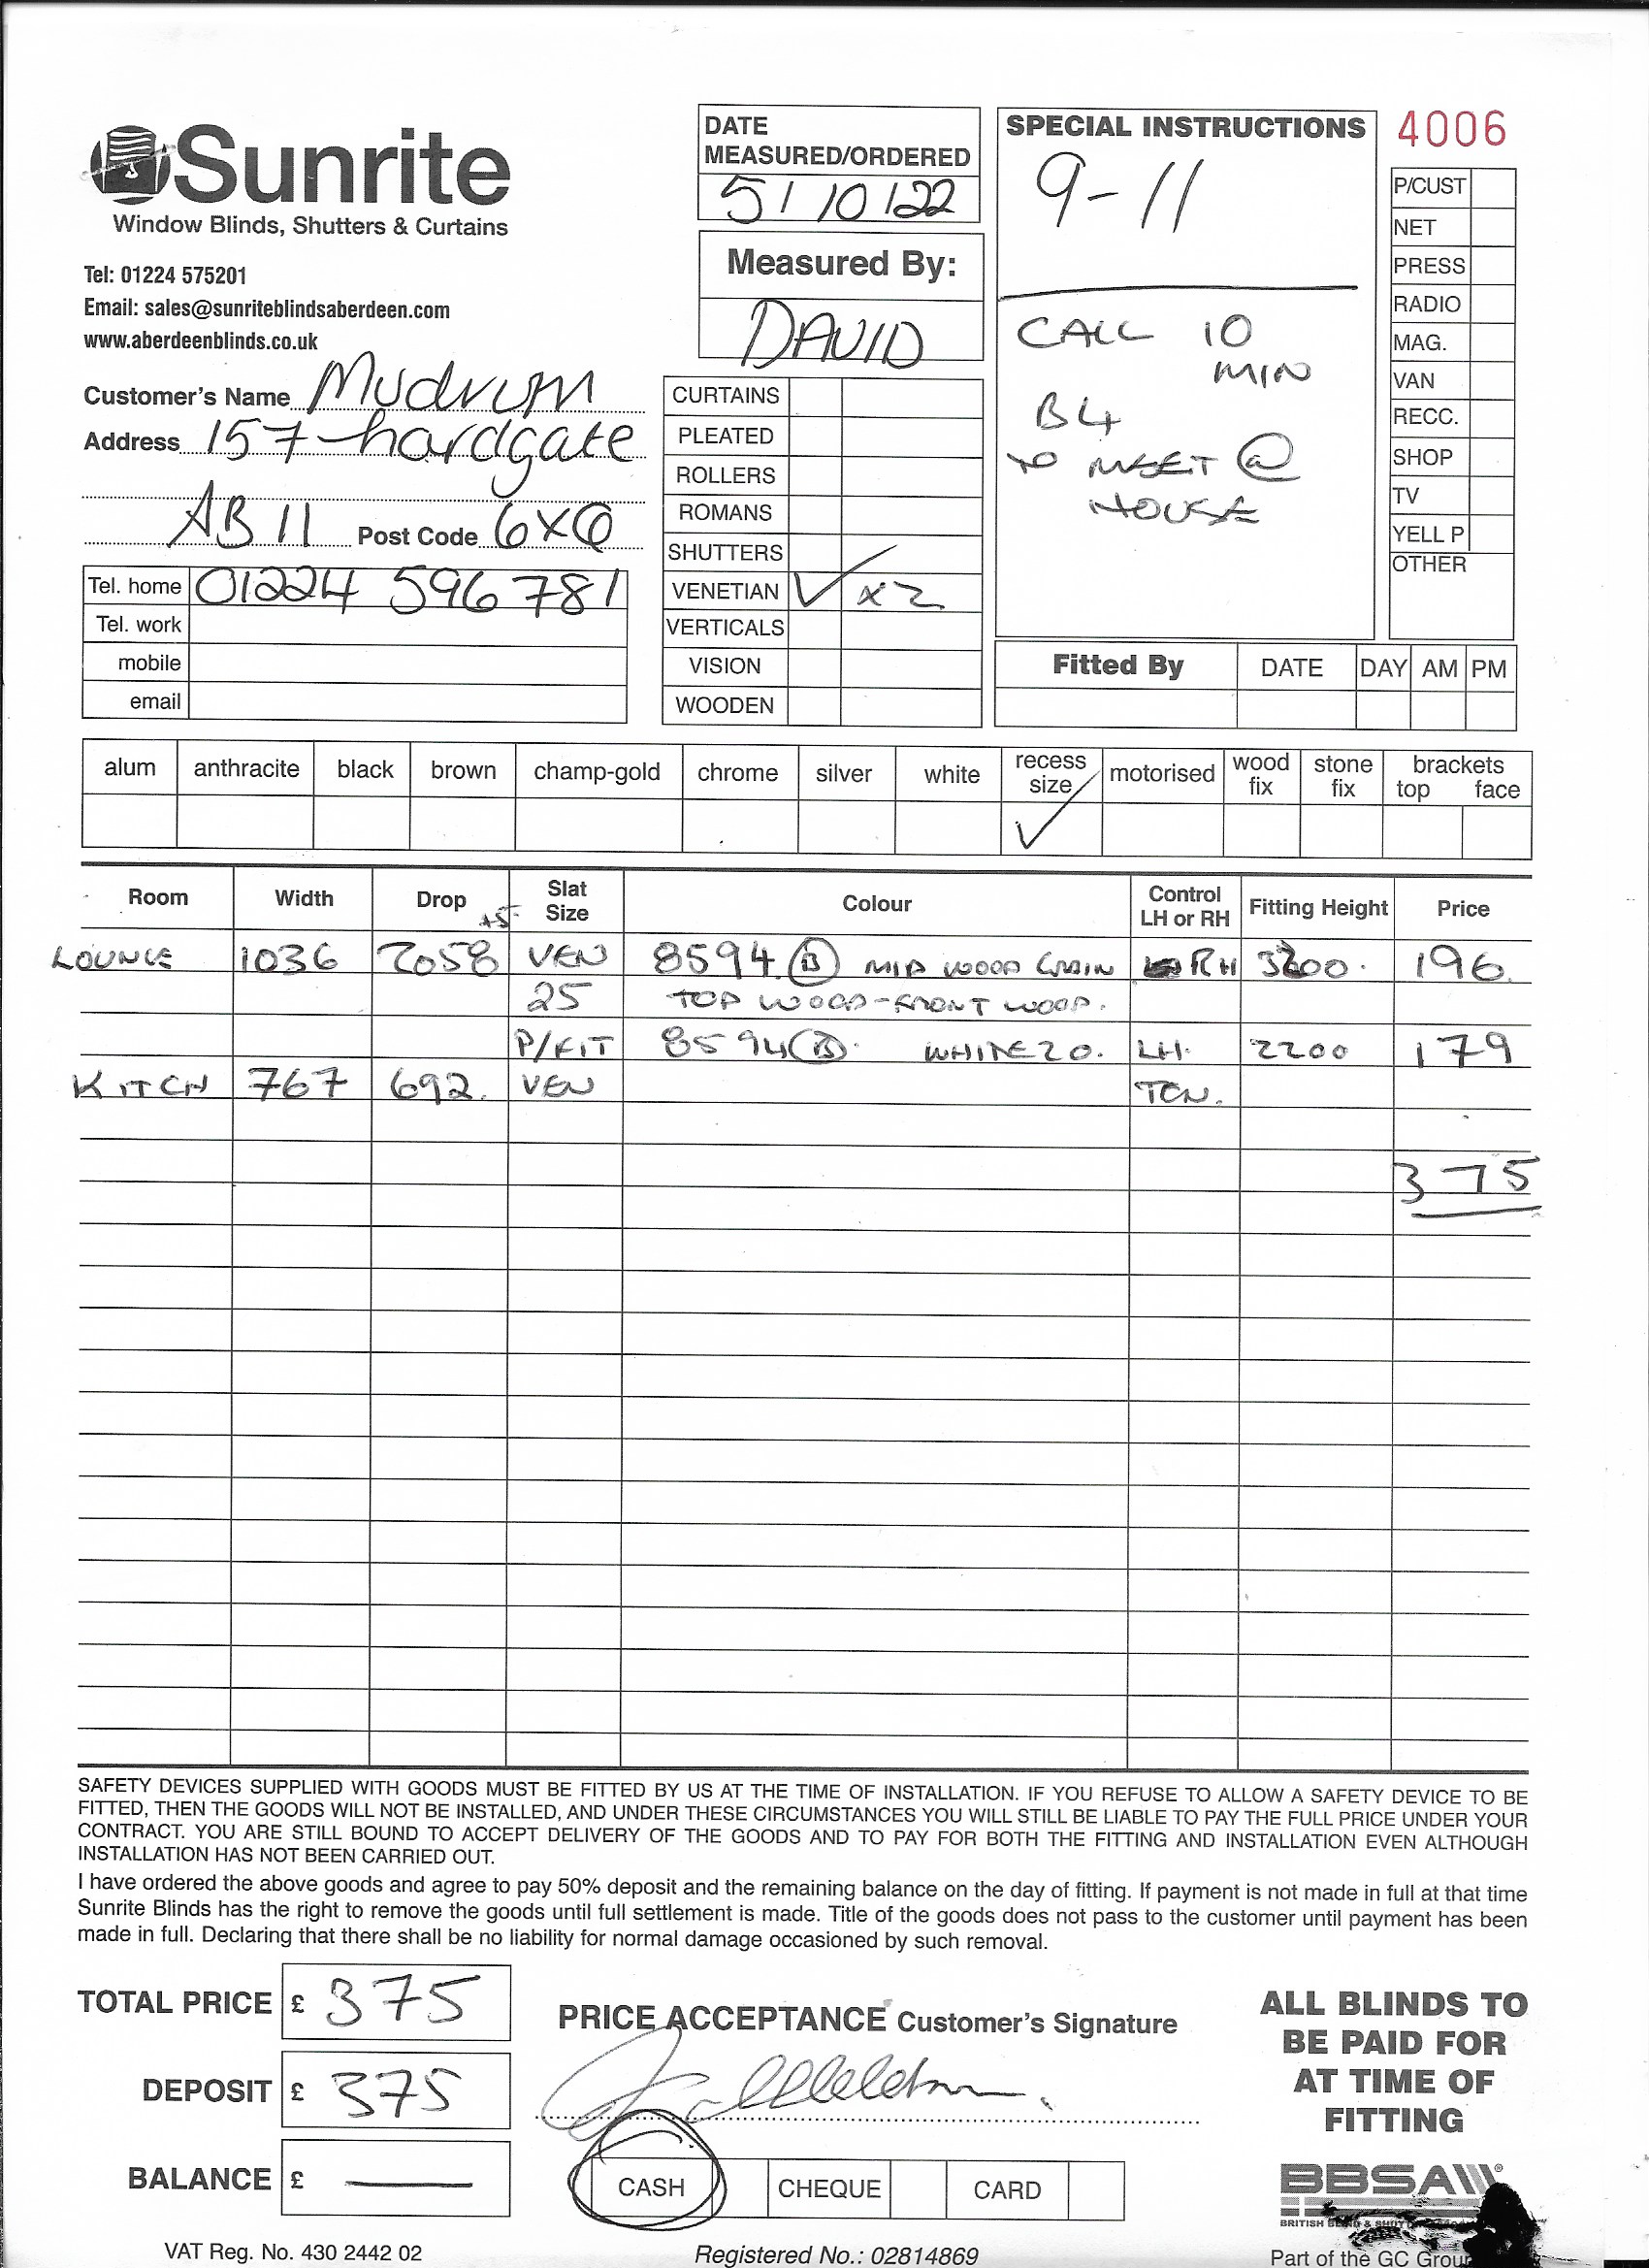 Sunrite
Window Blinds, Shutters & Curtains
Tel: 01224 575201
Email: sales@sunriteblindsaberdeen.com
www.aberdeenblinds.co.uk
Customer's Name
Address 157 hardgate
AB11 Post Code 6XQ
Tel. home 01224 596781
Tel. work
mobile
email
DATE
MEASURED/ORDERED
5/10/22
Measured By:
DAVID
CURTAINS
PLEATED
ROLLERS
ROMANS
SHUTTERS
VENETIAN ✓ x2
VERTICALS
VISION
WOODEN
SPECIAL INSTRUCTIONS
9-11
CALL 10
MIN
B4
TO MEET @
HOUSE
4006
P/CUST
NET
PRESS
RADIO
MAG.
VAN
RECC.
SHOP
TV
YELL P
OTHER
Fitted By DATE DAY AM PM
alum anthracite black brown champ-gold chrome silver white recess size motorised wood fix stone fix brackets top face
✓
Room Width Drop +5 Slat Size Colour Control LH or RH Fitting Height Price
LOUNGE 1036 2058 VEN 8594 (B) MID WOOD GRAIN RH 196
25 TOP WOOD-FRONT WOOD.
P/FIT 8594 (B) WHITE 20. LH. 2200 179
KITCH 767 692. VEN
375
SAFETY DEVICES SUPPLIED WITH GOODS MUST BE FITTED BY US AT THE TIME OF INSTALLATION. IF YOU REFUSE TO ALLOW A SAFETY DEVICE TO BE
FITTED, THEN THE GOODS WILL NOT BE INSTALLED, AND UNDER THESE CIRCUMSTANCES YOU WILL STILL BE LIABLE TO PAY THE FULL PRICE UNDER YOUR
CONTRACT. YOU ARE STILL BOUND TO ACCEPT DELIVERY OF THE GOODS AND TO PAY FOR BOTH THE FITTING AND INSTALLATION EVEN ALTHOUGH
INSTALLATION HAS NOT BEEN CARRIED OUT.
I have ordered the above goods and agree to pay 50% deposit and the remaining balance on the day of fitting. If payment is not made in full at that time
Sunrite Blinds has the right to remove the goods until full settlement is made. Title of the goods does not pass to the customer until payment has been
made in full. Declaring that there shall be no liability for normal damage occasioned by such removal.
TOTAL PRICE £ 375
DEPOSIT £ 375
BALANCE £ —
PRICE ACCEPTANCE Customer's Signature
CASH CHEQUE CARD
ALL BLINDS TO
BE PAID FOR
AT TIME OF
FITTING
BBSA
VAT Reg. No. 430 2442 02
Registered No.: 02814869
Part of the GC Group